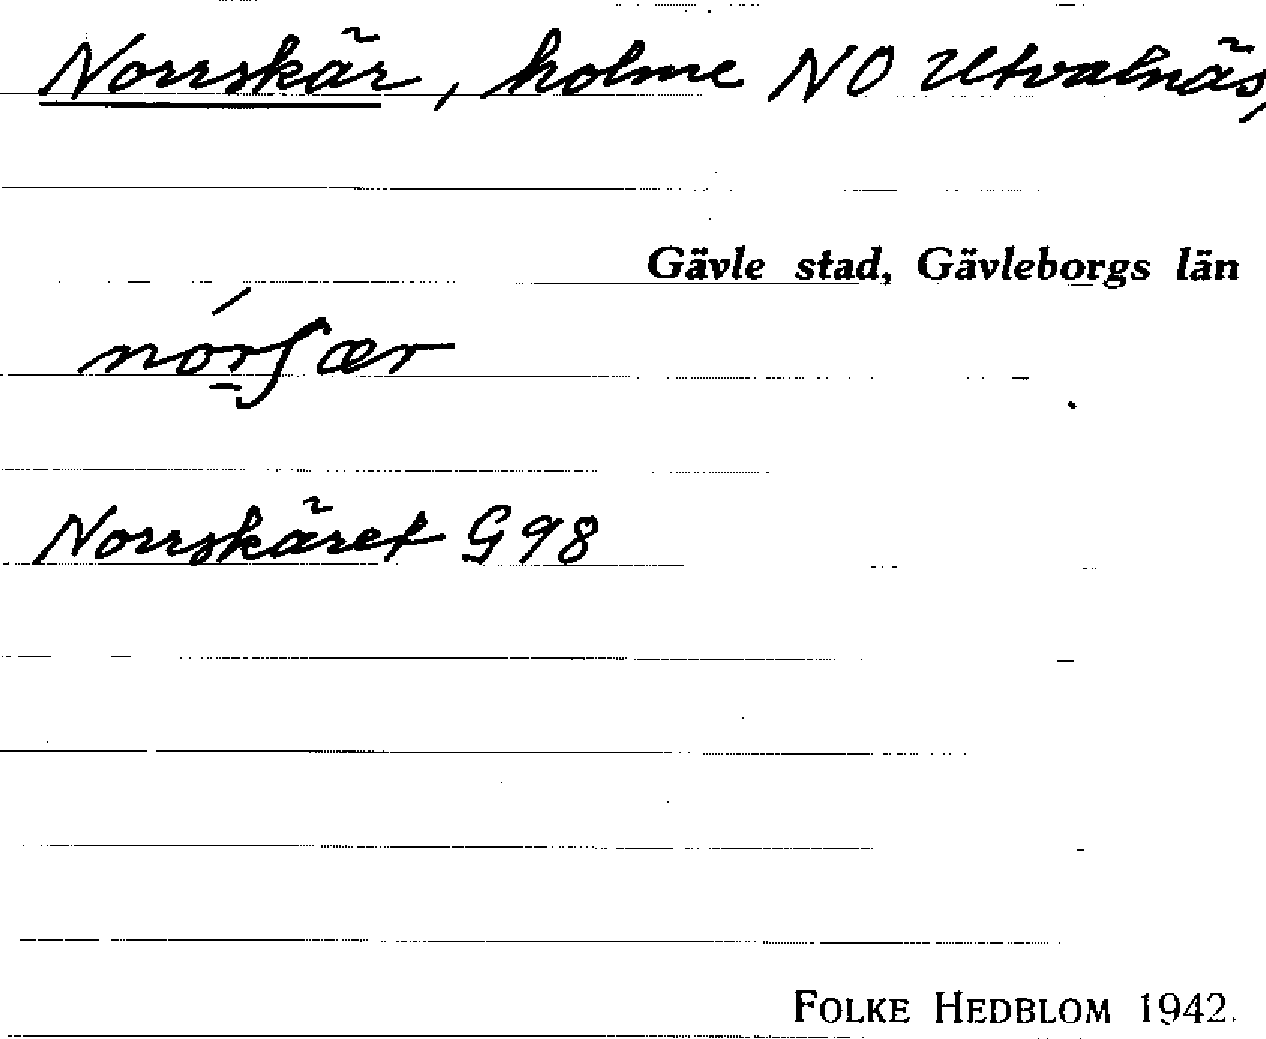 Norrskär, holme NO Utvalnäs,
Gävle stad, Gävleborgs län
nórʃær
Norrskäret G98
FOLKE HEDBLOM 1942.